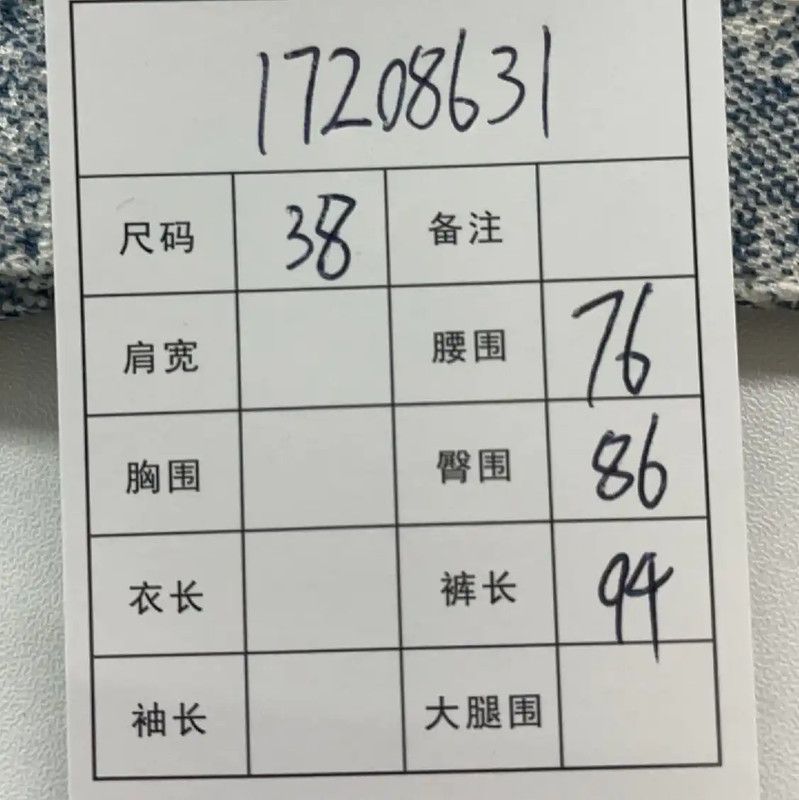 17208631
尺码 38 备注
肩宽 腰围 76
胸围 臀围 86
衣长 裤长 94
袖长 大腿围